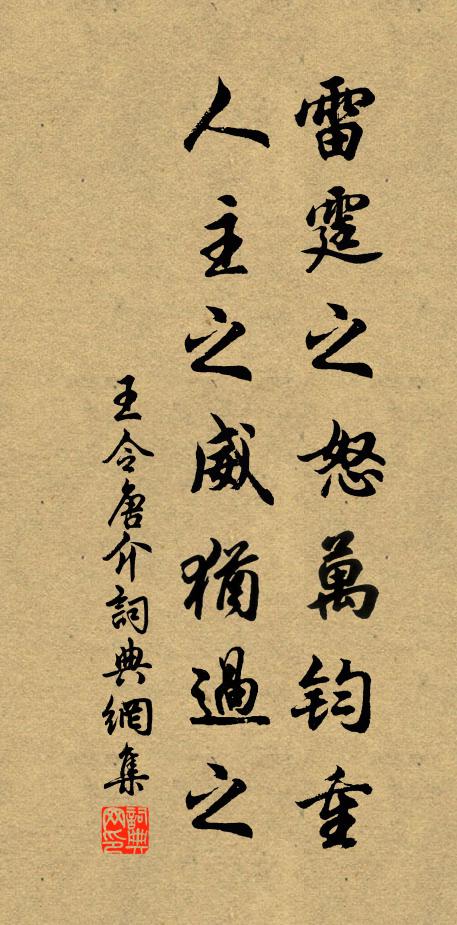 雷霆之怒萬钧重
人主之威猶過之
王令唐介詞典網集
詞典网印